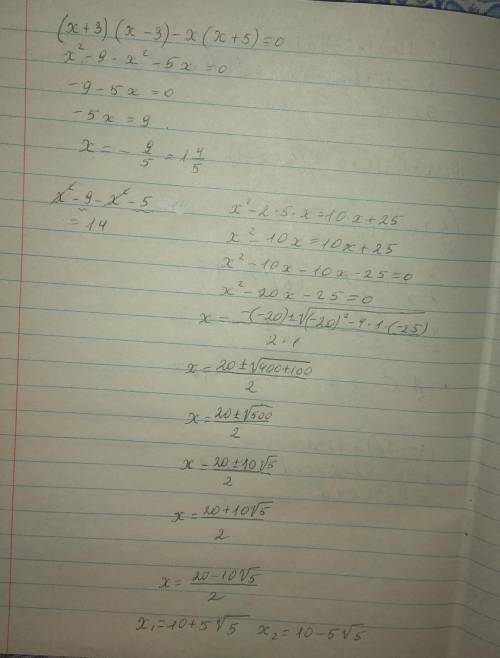 (x+3)(x-3)-x(x+5)=0
x²-9-x²-5x=0
-9-5x=0
-5x=9
x=-9/5=1 4/5
x²-9-x²-5
=14
x²-2·5·x=10x+25
x²-10x=10x+25
x²-10x-10x-25=0
x²-20x-25=0
x=-(-20)±√(-20)²-4·1·(-25)/2·1
x=20±√400+100/2
x=20±√500/2
x=20±10√5/2
x=20+10√5/2
x=20-10√5/2
x₁=10+5√5 x₂=10-5√5